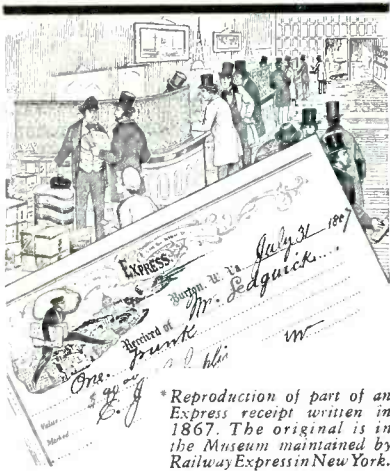 EXPRESS
Burton, W. Va July 31 1867
Received of Mr. Sedgwick
One. Trunk
Value $
Marked
*Reproduction of part of an
Express receipt written in
1867. The original is in
the Museum maintained by
Railway Express in New York.